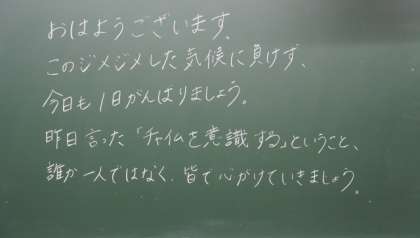 おはようございます。
このジメジメした気候に負けず、
今日も1日がんばりましょう。
昨日言った「チャイムを意識する」ということ、
誰か一人ではなく、皆で心がけていきましょう。